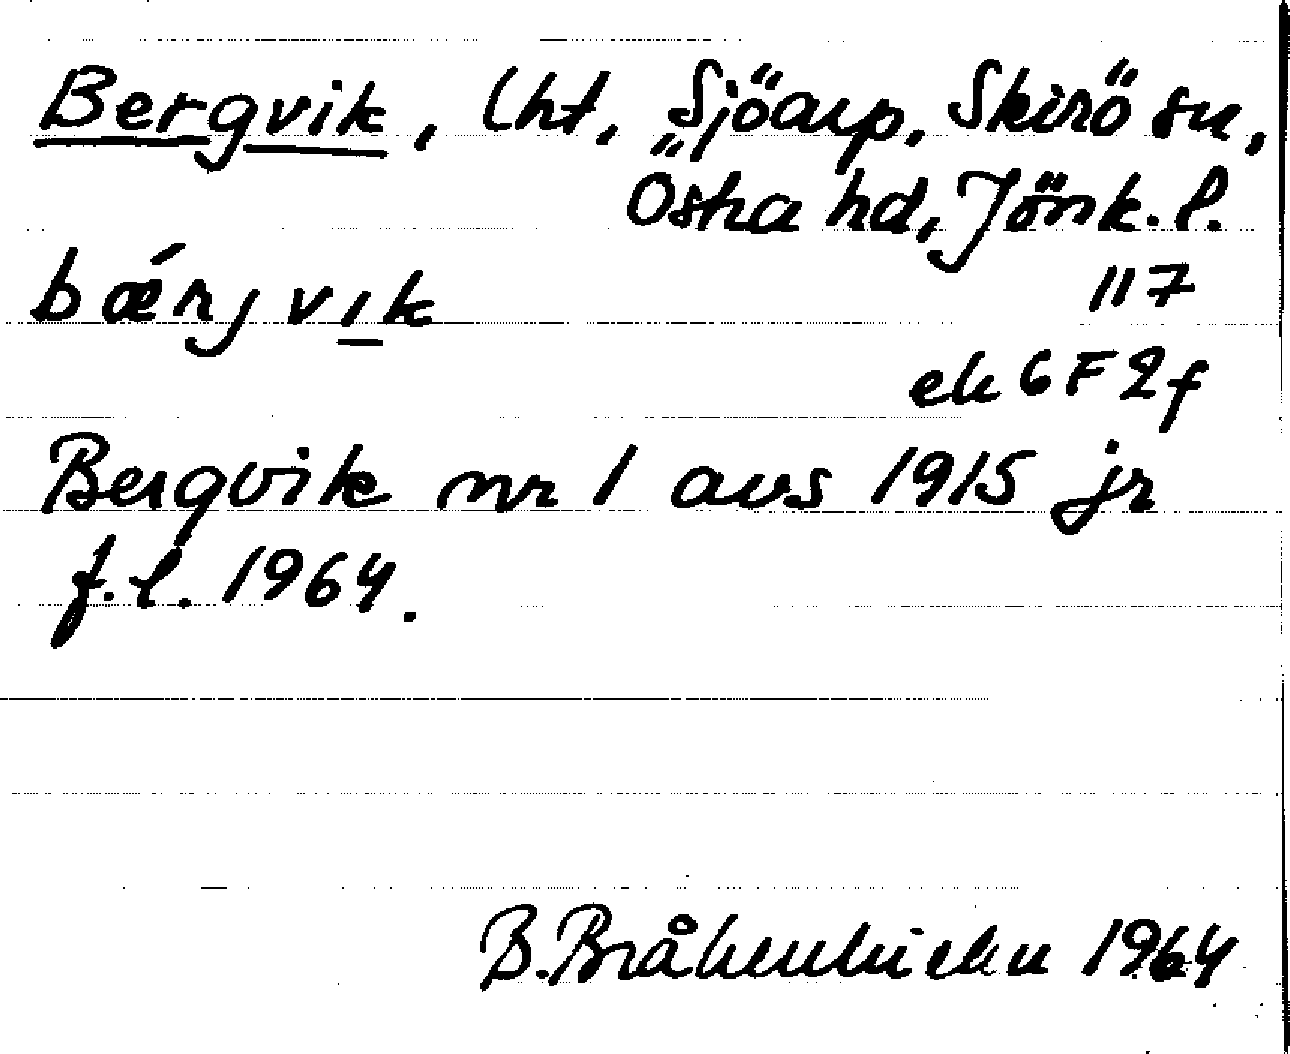 Bergvik, lht, Sjöarp, Skirö sn,
Östra hd, Jönk. l.
bǽrjvik
117
ek 6F2f
Bergvik nr 1 avs 1915 jr
f.l. 1964.
B. 1964